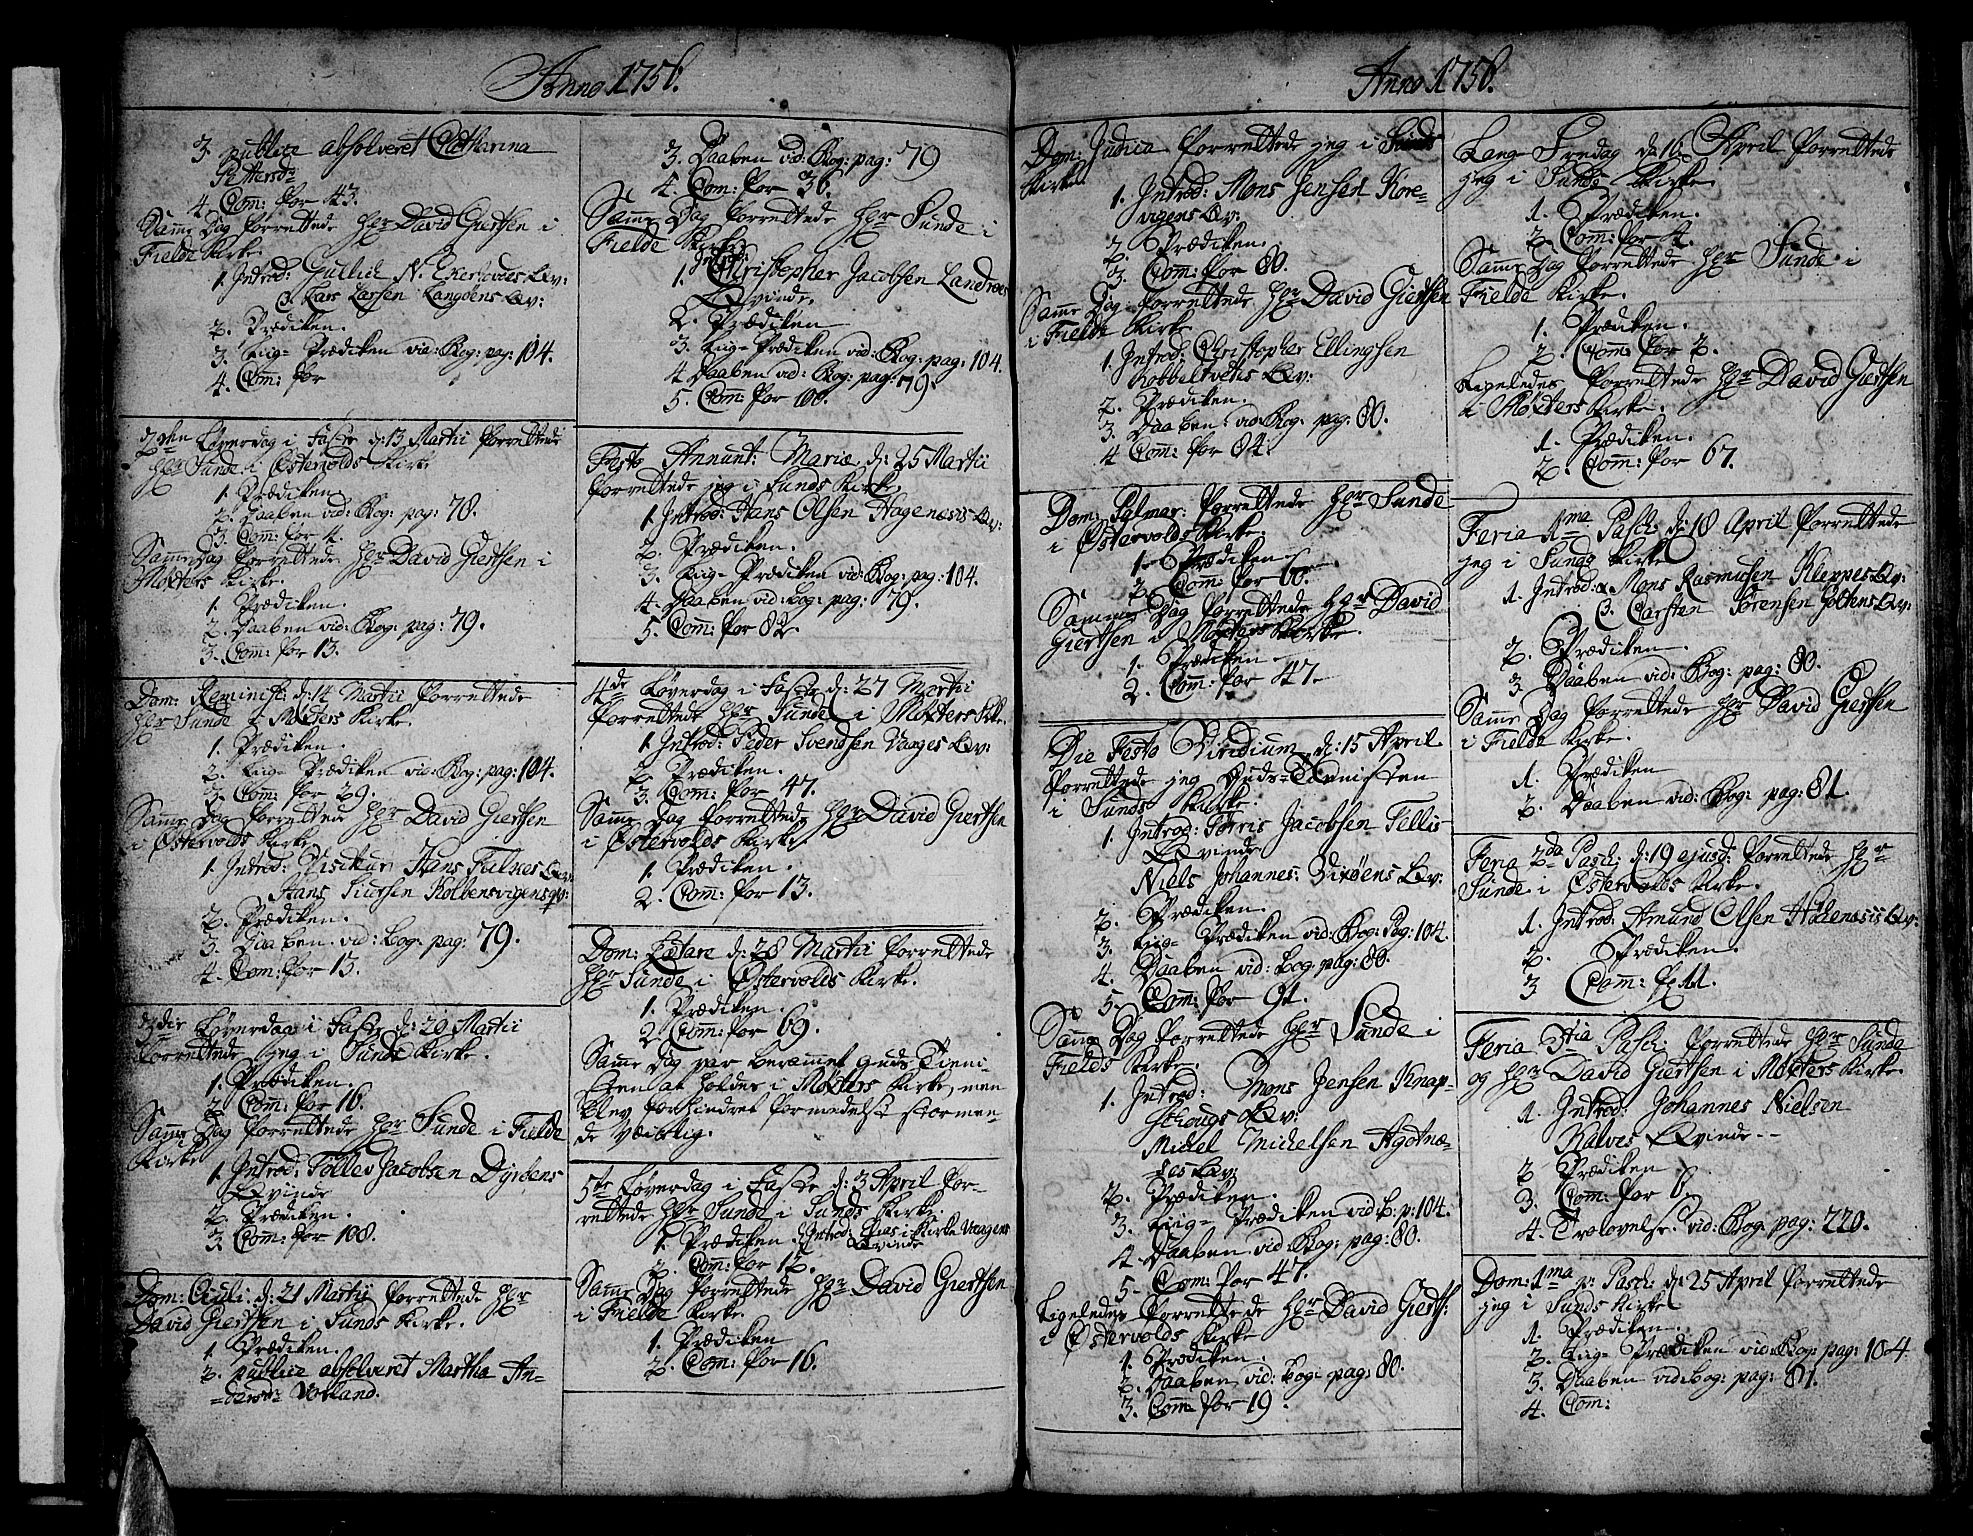 Anno 1756.
3. publice absolveret Catharina
Pittersdr
4. Com: for 43.
Samme Dag forrettede Hr David Giertsen i
Fielde Kirke.
1. Introd: Gullich N. Ekerevaes Qv:
Lars Larsen Langøens Qv:
2. Prædiken.
3. Liig-Prædiken vid: Bog: pag: 104.
4. Com: for
2den Løverdag i Faste d: 13 Martii forrettede
Hr Sunde i Østervolds Kirke
1. Prædiken
2. Daaben vid: Bog: pag: 78.
3. Com: for 4.
Samme Dag forrettede Hr David Giertsen i
Møxters Kirke.
1. Prædiken.
2. Daaben vid: Bog: pag: 79.
3. Com: for 13.
Dom: Reminisc: d: 14 Martii forrettede
Hr Sunde i Møxters Kirke.
1. Prædiken.
2. Liig-Prædiken vid: Bog: pag: 104.
3. Com: for 29.
Samme Dag forrettede Hr David Giertsen
i Østervolds Kirke
1. Introd: Hans Falnes Qv:
Hans Siursen Kolbensvigens Qv:
2. Prædiken.
3. Daaben vid: Bog: pag: 79.
4. Com: for 13.
3die Løverdag i Faste d: 20 Martii
forrettede jeg i Sunds Kirke.
1. Prædiken.
2. Com: for 16.
Samme Dag forrettede Hr Sunde i Fielde
Kirke
1. Introd: Tollev Jacobsen Dyrøens
Qvinde
2. Prædiken.
3. Com: for 108.
Dom: Oculi: d: 21 Martii forrettede Hr
David Giertsen i Sunds Kirke.
1. Prædiken.
2. publice absolveret Martha An-
dersdr Vorland.
3. Daaben vid: Bog: pag: 79
4. Com: for 36.
Samme Dag forrettede Hr Sunde i
Fielde Kirke
1. Introd: Christopher Jacobsen Landroes
Qvinde.
2. Prædiken
3. Liig-Prædiken vid: Bog: pag: 104.
4. Daaben vid: Bog: pag: 79.
5. Com: for 100.
Festo Annunt: Mariæ d: 25 Martii
forrettede jeg i Sunds Kirke
1. Introd: Hans Olsen Hagenæsis Qv:
2. Prædiken.
3. Liig-Prædiken vid: Bog: pag: 104.
4. Daaben vid: Bog: pag: 79.
5. Com: for 82.
4de Løverdag i Faste d: 27 Martii
forrettede Hr Sunde i Møxters Kke.
1. Introd: Peder Svendsen Vaages Qv:
2. Prædiken.
3. Com: for 47.
Samme Dag forrettede Hr David Giertsen
i Østervolds Kirke
1. Prædiken.
2. Com: for 13.
Dom: Lætare d: 28 Martii forrettede
Hr Sunde i Østervolds Kirke.
1. Prædiken.
2. Com: for 69.
Samme Dag var berammet Guds Tieni-
sten at holdes i Møxters Kirke, men
blev forhindret formedelst stormen-
de Veirlig.
5te Løverdag i Faste d: 3 April for-
rettede Hr Sunde i Sunds Kirke.
1. Prædiken. Introd: Elias i Kirke Vaagens
Qvinde
2. Com: for 12.
Samme Dag forrettede Hr David Giertsen
i Fielde Kirke
1. Prædiken
2. Com: for 16.
Anno 1756.
Dom: Judica forrettede jeg i Sunds
Kirke
1. Introd: Mons Jensen Kore-
vigens Qv:
2. Prædiken.
3. Com: for 80.
Samme Dag forrettede Hr David Giertsen
i Fielde Kirke
1. Introd: Christopher Ellingsen
Kobbeltvets Qv:
2. Prædiken.
3. Daaben vid: Bog: pag: 80.
4. Com: for 84.
Dom: Palmar: forrettede Hr Sunde
i Østervolds Kirke
1. Prædiken
2. Com: for 60.
Samme Dag forrettede Hr David
Giertsen i Møxters Kirke.
1. Prædiken
2. Com: for 47.
Die Festo Viridium d: 15 April
forrettede jeg Guds-Tienisten
i Sunds Kirke.
1. Introd: Torris Jacobsen Tellis
Qvinde
Niels Johannes: Vixøens Qv:
2. Prædiken.
3. Liig-Prædiken vid: Bog: Pag: 104.
4. Daaben vid: Bog: pag: 80.
5. Com: for 91.
Samme Dag forrettede Hr Sunde i
Fields Kirke.
1. Introd: Mons Jensen Knap-
skougs Qv:
Michel Michelsen Agotnæ-
ses Qv:
2. Prædiken.
3. Liig-Prædiken vid: B: p: 104.
4. Daaben vid: Bog: pag: 80.
5. Com: for 47.
Ligeledes forrettede Hr David Gierts:
i Østervolds Kirke
1. Prædiken.
2. Daaben vid: Bog: pag: 80.
3. Com: for 19.
Lang Fredag d: 16 April forrettede
jeg i Sunds Kirke
1. Prædiken.
2. Com: for 4.
Samme Dag forrettede Hr Sunde i
Fielde Kirke.
1. Prædiken.
2. Com: for 2.
Ligeledes forrettede Hr David Giertsen
i Møxters Kirke.
1. Prædiken.
2. Com: for 67.
Feria 1ma Pasch: d: 18 April forrettede
jeg i Sunds Kirke
1. Introd: Mons Rasmusen Kleppes Qv:
Carsten Sørensen Goltens Qv:
2. Prædiken.
3. Daaben vid: Bog: pag: 80.
Samme Dag forrettede Hr David Giertsen
i Fielde Kirke.
1. Prædiken
2. Daaben vid: Bog: pag: 81.
Feria 2da Pasc: d: 19 ejusd: forrettede Hr
Sunde i Østervolds Kirke.
1. Introd: Amund Olsen Hagenæsis Qv:
2. Prædiken.
3 Com: for 11.
Feria 3tia Pasch: forrettede Hr Sunde
og Hr David Giertsen i Møxters Kirke.
1. Introd: Johannes Nielsen
Kalves Qvinde
2 Prædiken
3. Com: for 6.
4. Trolovelse vid: Bog: pag: 220.
Dom: 1ma p: Pasch: d: 25 April forrettede
jeg i Sunds Kirke
1. Prædiken.
2. Liig-Prædiken vid: Bog: pag: 104.
3. Daaben vid: Bog: pag: 81.
4. Com: